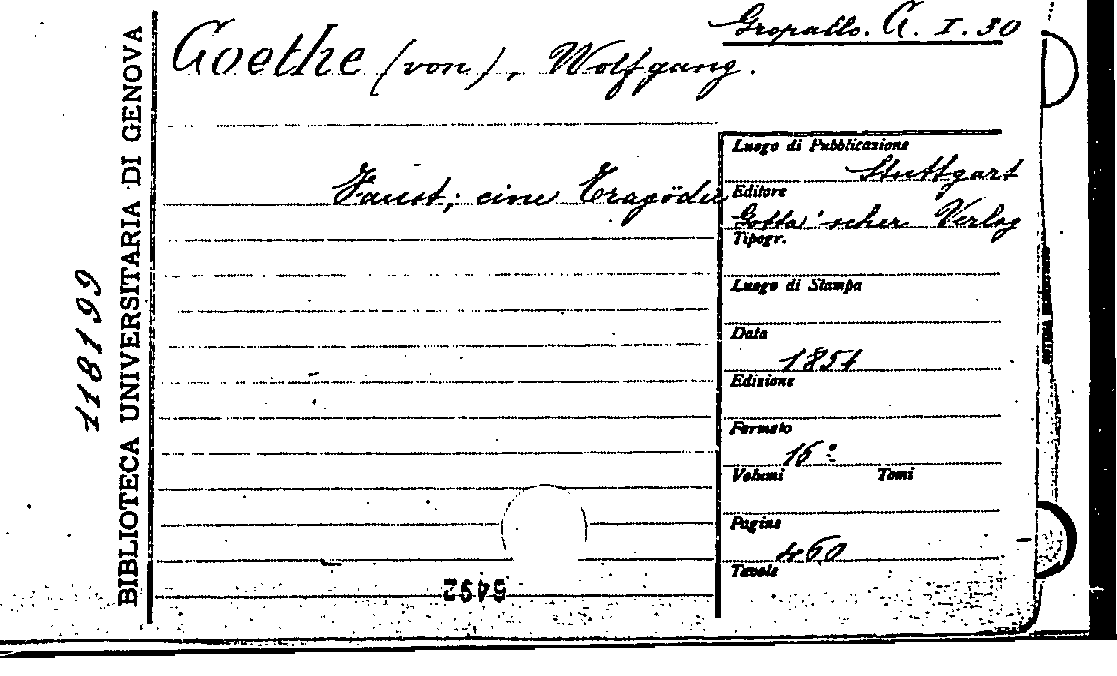 Gropallo. G. I. 30
Goethe (von), Wolfgang.
Faust; eine Tragödie
Luogo di Pubblicazione
Stuttgart
Editore
Cotta'scher Verlag
Tipogr.
Luogo di Stampa
Data
1851
Edizione
Formato
16°
Volumi Tomi
Pagine
460
Tavole
118199
BIBLIOTECA UNIVERSITARIA DI GENOVA
5492